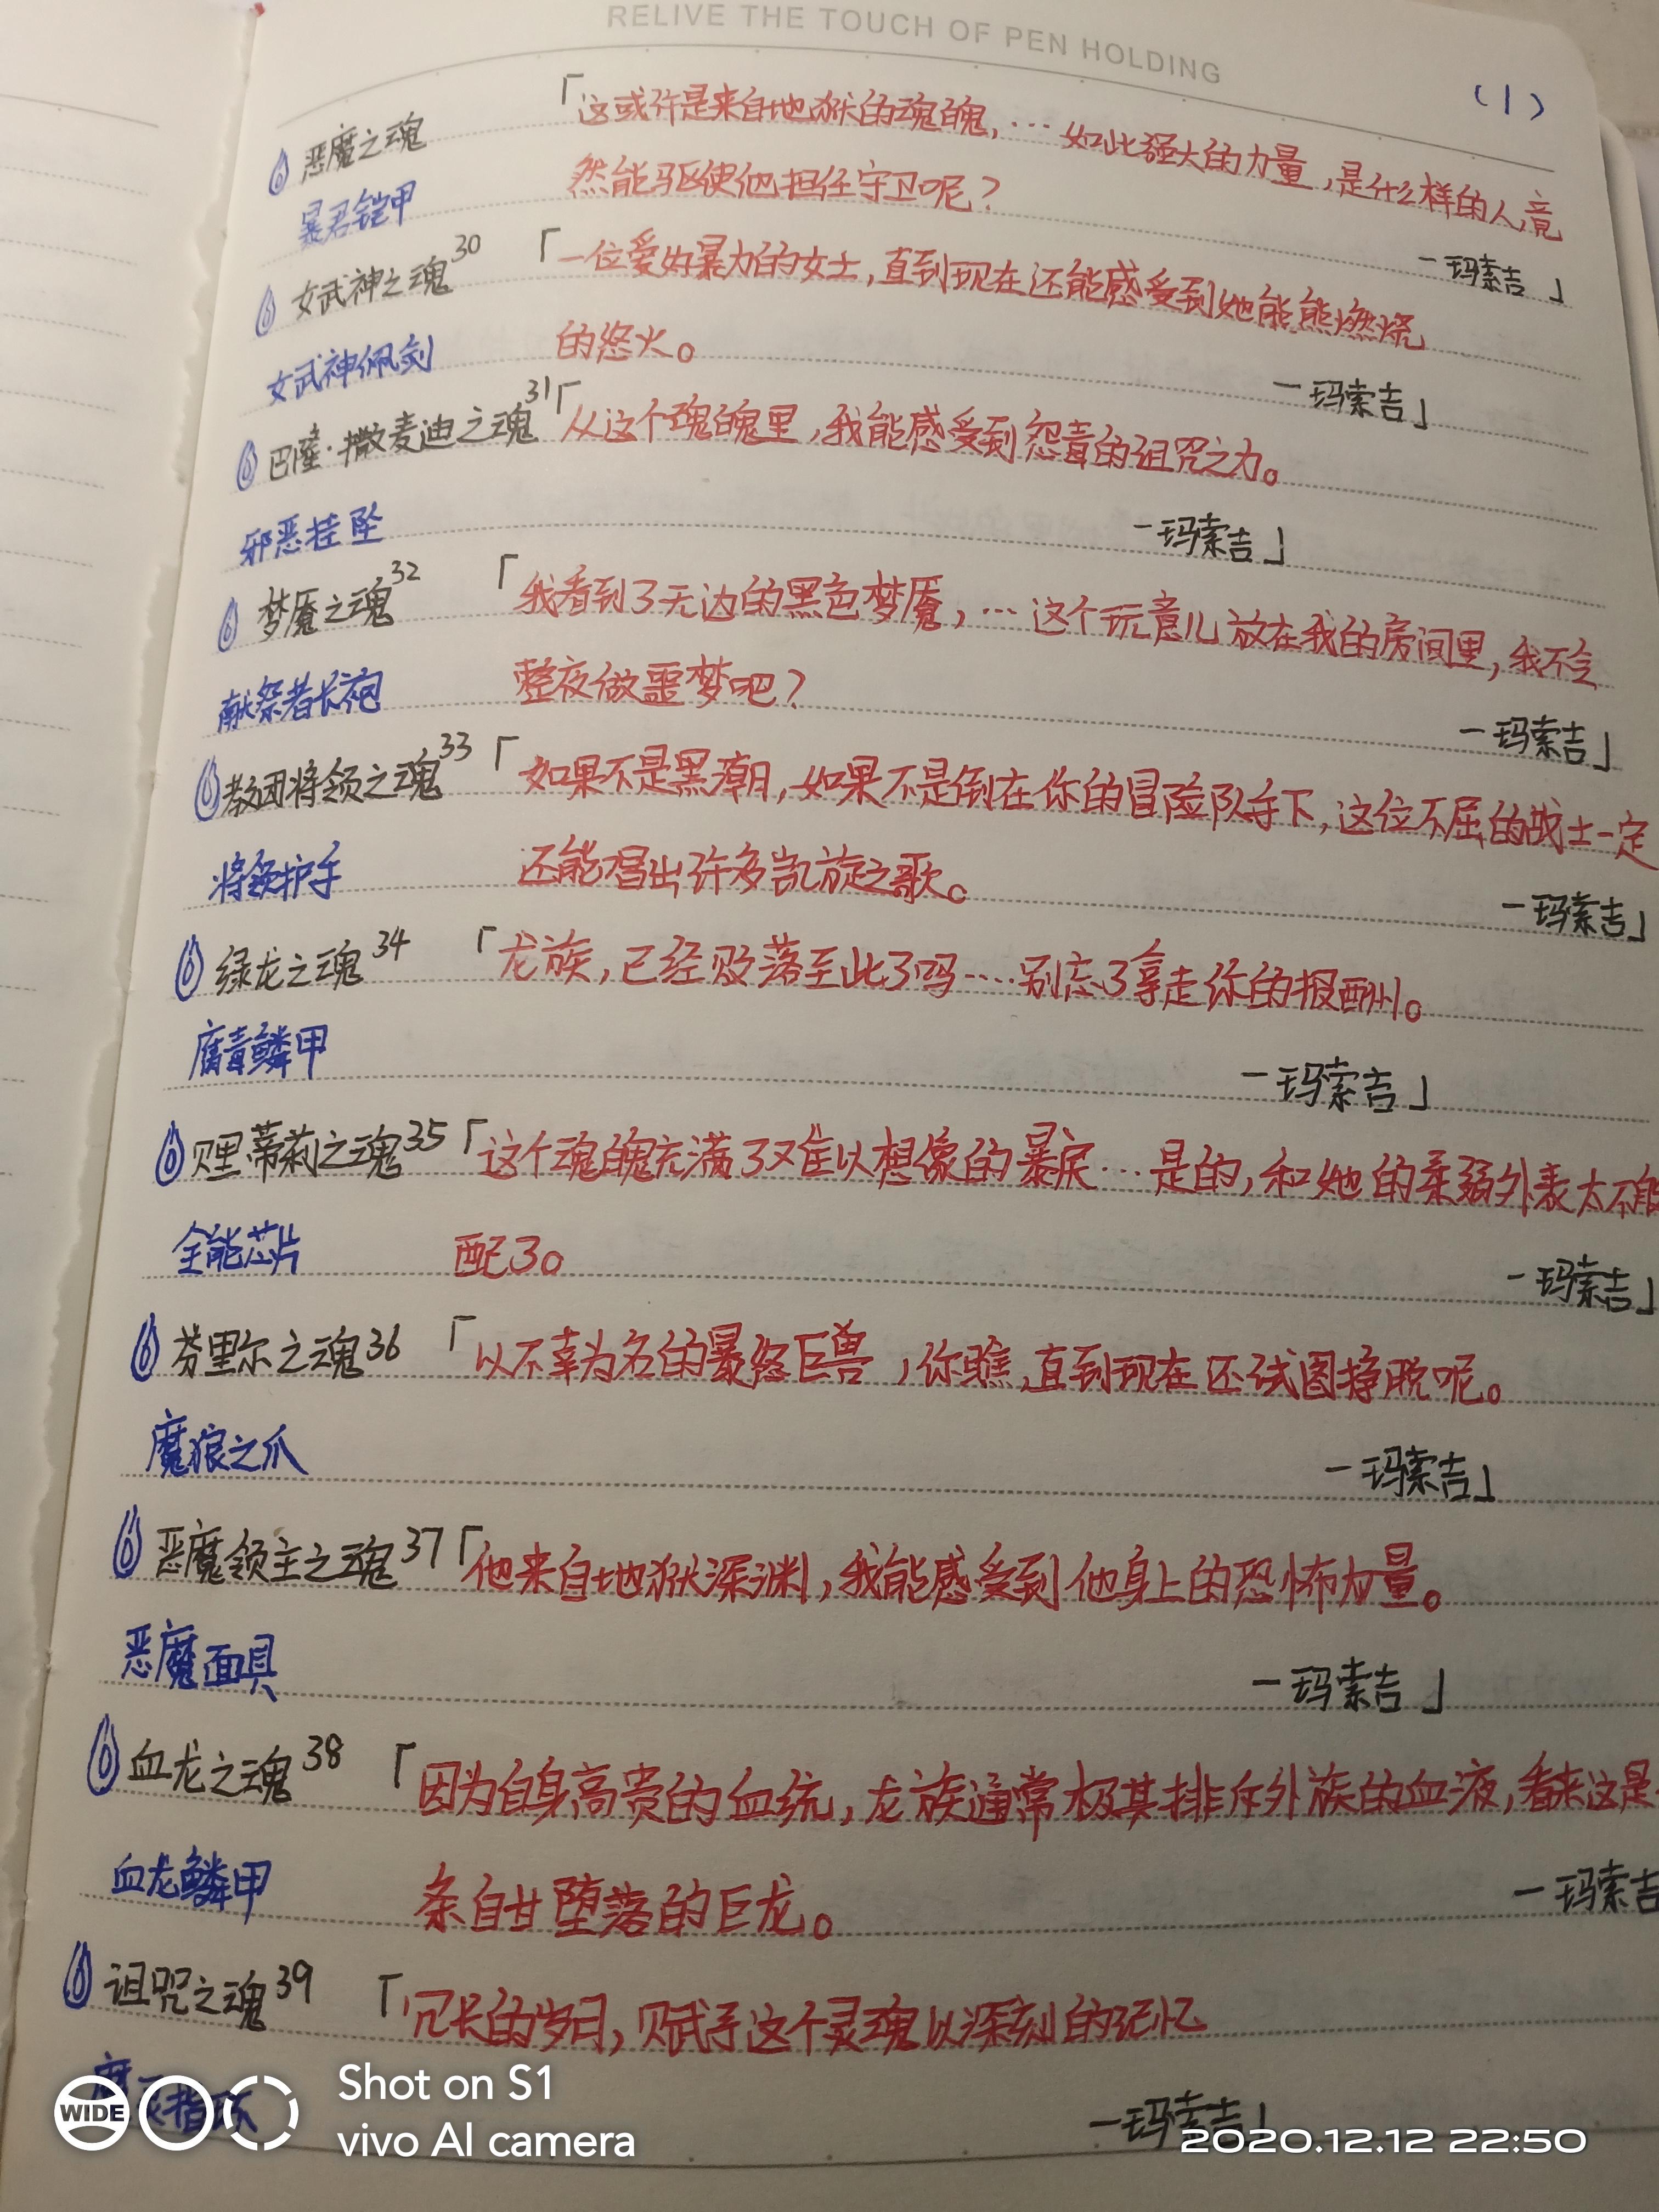 RELIVE THE TOUCH OF PEN HOLDING
(1)
恶魔之魂 「这或许是来自地狱的魂魄，… 如此强大的力量，是什么样的人，竟
暴君铠甲 然能驱使他担任守卫呢？
—玛索吉 」
女武神之魂30 「一位爱好暴力的女士，直到现在还能感受到她能熊燃烧
女武神佩剑 的怒火。
—玛索吉」
巴隆·撒麦迪之魂31「从这个魂魄里，我能感受到怨毒的诅咒之力。
邪恶挂坠 —玛索吉」
梦魇之魂32 「我看到了无边的黑色梦魇，… 这个玩意儿放在我的房间里，我不会
献祭者长袍 整夜做噩梦吧？
—玛索吉」
教团将领之魂33「如果不是黑潮，如果不是倒在你的冒险队手下，这位不屈的战士一定
将领护手 还能唱出许多凯旋之歌。
—玛索吉」
绿龙之魂34 「龙族，已经败落至此了吗…别忘了拿走你的报酬。
腐毒鳞甲 —玛索吉」
贝里蒂莉之魂35「这个魂魄充满了难以想像的暴戾…是的，和她的柔弱外表太不般
全能芯片 配了。
—玛索吉」
芬里尔之魂36 「以不幸为名的暴怒巨兽，你瞧，直到现在还试图挣脱呢。
魔狼之爪 —玛索吉」
恶魔领主之魂37「他来自地狱深渊，我能感受到他身上的恐怖力量。
恶魔面具 —玛索吉」
血龙之魂38 「因为自身高贵的血统，龙族通常极其排斥外族的血液，看来这是
血龙鳞甲 条自甘堕落的巨龙。 —玛索吉
诅咒之魂39 「冗长的岁月，赋予这个灵魂以深刻的记忆
指环 —玛索吉」
WIDE
Shot on S1
vivo AI camera
2020.12.12 22:50